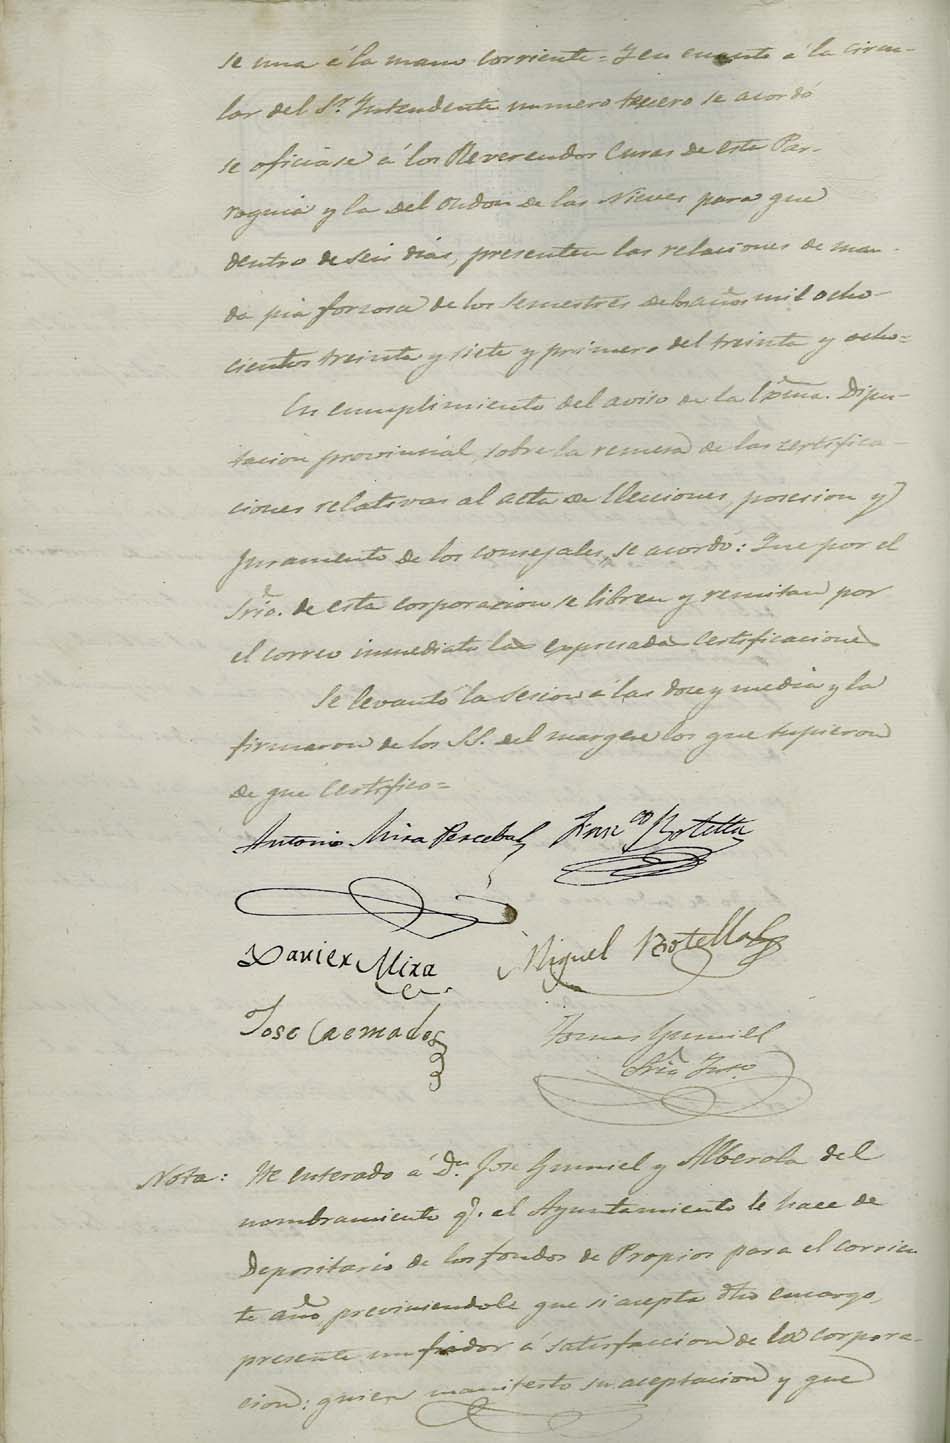 se una á la mano corriente = Y en cuanto á la circu-
lar del Sr. Yntendente numero tercero se acordó
se oficiase á los Reverendos Curas de esta Par-
roquia y la del Ondon de las Nieves para que
dentro de seis dias, presenten las relaciones de man-
da pia forzosa de los semestres de años mil ocho-
cientos treinta y siete y primero del treinta y ocho =
En cumplimiento del aviso de la Exma. Dipu-
tacion provincial, sobre la remesa de las certifica-
ciones relativas al acta de Elecciones, posesion y
Juramento de los consejales, se acordó: Que por el
Srio. de esta corporacion se libren y remitan por
el correo inmediato las expresadas Certificaciones
Se levantó la Sesion á las doce y media y la
firmaron de los SS. del margen los que supieron
de que Certifico =
Antonio Mira Percebal Franco Botella
Xavier Mira Miguel Botella
Jose Cremades Tomas Gumiel
Srio
Nota: He enterado á Dn. Jose Gumiel y Alberola del
nombramiento q. el Ayuntamiento le hace de
Depositario de los fondos de Propios para el corrien
te año, previniendole que si acepta dho encargo,
presente un fiador á satisfaccion de la corpora-
cion: quien manifesto su aceptacion y que